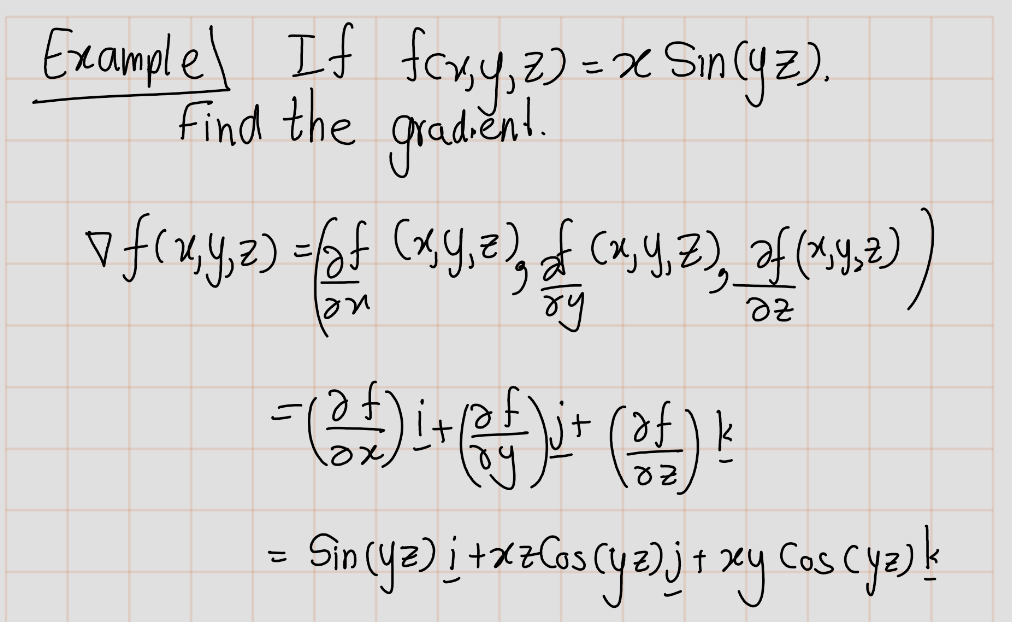 Example) If f(x,y,z) = x Sin(yz).
Find the gradient.
∇f(x,y,z) = (∂f/∂x (x,y,z), ∂f/∂y (x,y,z), ∂f/∂z (x,y,z))
= (∂f/∂x) i + (∂f/∂y) j + (∂f/∂z) k
= Sin(yz) i + xz Cos(yz) j + xy Cos(yz) k